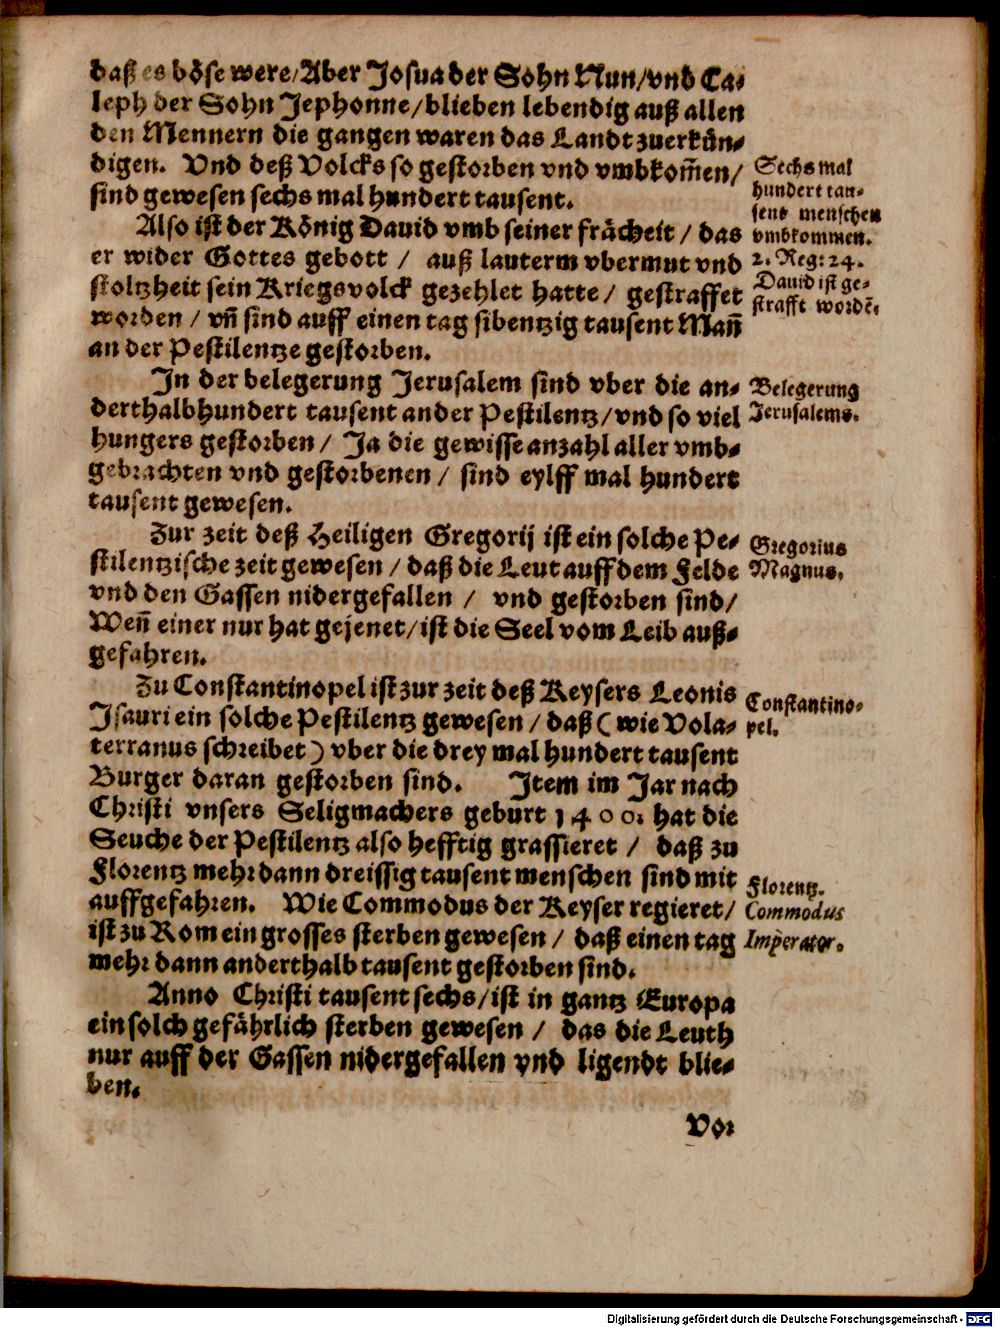 daß es böse were/Aber Josua der Sohn Nun/vnd Ca-
leph der Sohn Jephonne/blieben lebendig auß allen
den Mennern die gangen waren das Landt zuerkün-
digen. Vnd deß Volcks so gestorben vnd vmbkom̃en/
sind gewesen sechs mal hundert tausent.
Sechs mal
hundert tau-
sent menschen
vmbkommen.
Also ist der König Dauid vmb seiner frächeit / das
er wider Gottes gebott / auß lauterm vbermut vnd
stoltzheit sein Kriegsvolck gezehlet hatte / gestraffet
worden / vñ sind auff einen tag sibentzig tausent Mañ
an der Pestilentze gestorben.
2. Reg: 24.
Dauid ist ge-
strafft wordē.
In der belegerung Jerusalem sind vber die an-
derthalbhundert tausent an der Pestilentz/vnd so viel
hungers gestorben / Ja die gewisse anzahl aller vmb-
gebrachten vnd gestorbenen / sind eylff mal hundert
tausent gewesen.
Belegerung
Jerusalems.
Zur zeit deß Heiligen Gregorij ist ein solche Pe-
stilentzische zeit gewesen / daß die Leut auff dem Felde
vnd den Gassen nidergefallen / vnd gestorben sind/
Weñ einer nur hat gejenet/ist die Seel vom Leib auß-
gefahren.
Gregorius
Magnus.
Zu Constantinopel ist zur zeit deß Keysers Leonis
Isauri ein solche Pestilentz gewesen / daß (wie Vola-
terranus schreibet) vber die drey mal hundert tausent
Burger daran gestorben sind. Item im Jar nach
Christi vnsers Seligmachers geburt 1400. hat die
Seuche der Pestilentz also hefftig grassieret / daß zu
Florentz mehr dann dreissig tausent menschen sind mit
auffgefahren. Wie Commodus der Keyser regieret/
ist zu Rom ein grosses sterben gewesen / daß einen tag
mehr dann anderthalb tausent gestorben sind.
Constantino-
pel.
Florentz.
Commodus
Imperator.
Anno Christi tausent sechs/ist in gantz Europa
ein solch gefährlich sterben gewesen / das die Leuth
nur auff der Gassen nidergefallen vnd ligendt blie-
ben.
Vor
Digitalisierung gefördert durch die Deutsche Forschungsgemeinschaft - DFG